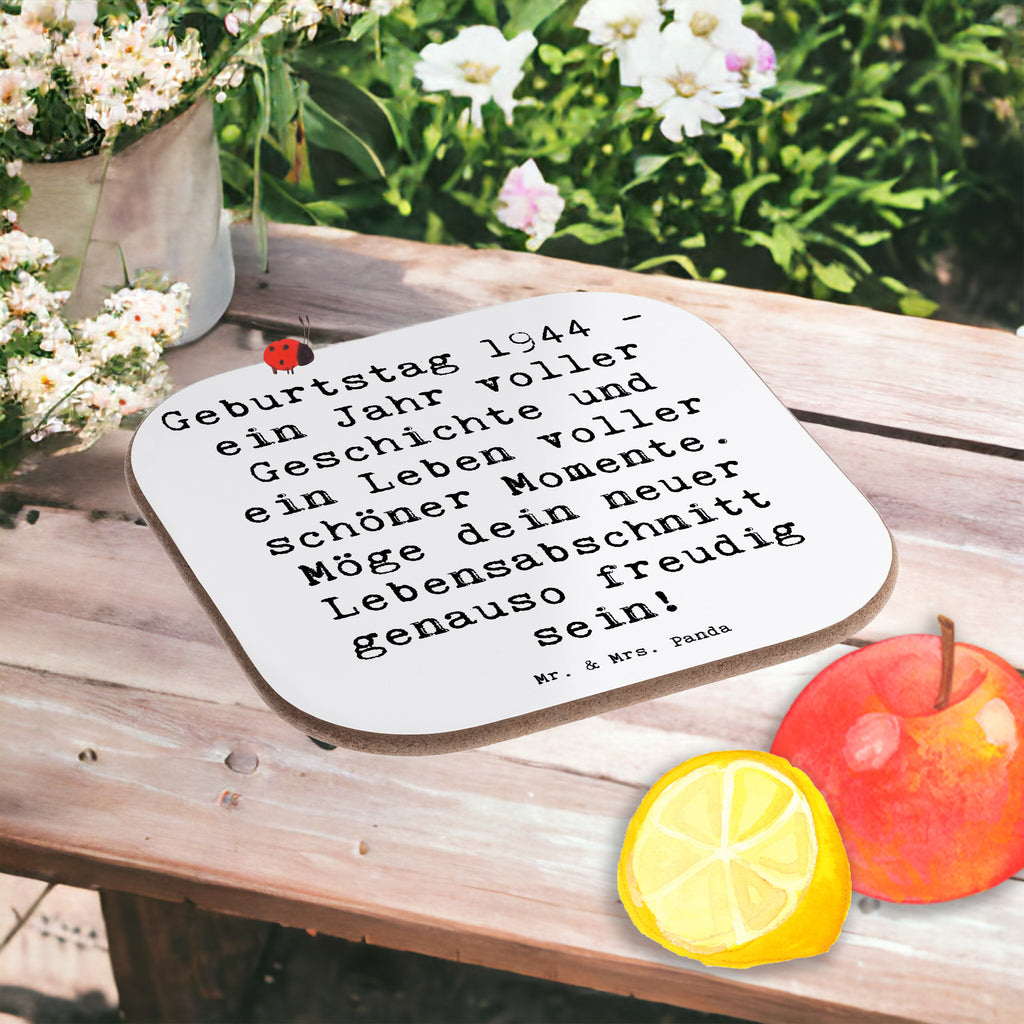 Geburtstag 1944 –
ein Jahr voller
Geschichte und
ein Leben voller
schöner Momente.
Möge dein neuer
Lebensabschnitt
genauso freudig
sein!
Mr. & Mrs. Panda